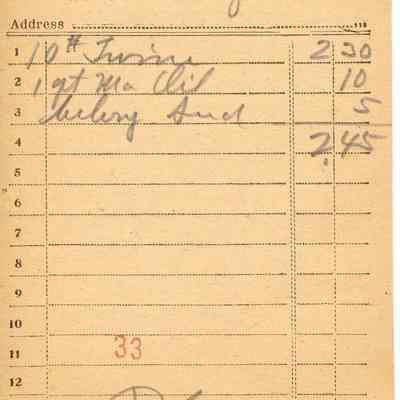 Address 118
1 10# Twine 2 30
2 1 qt Ma Oil 10
3 Celery Seed 5
4 2.45
5
6
7
8
9
10
11 33
12